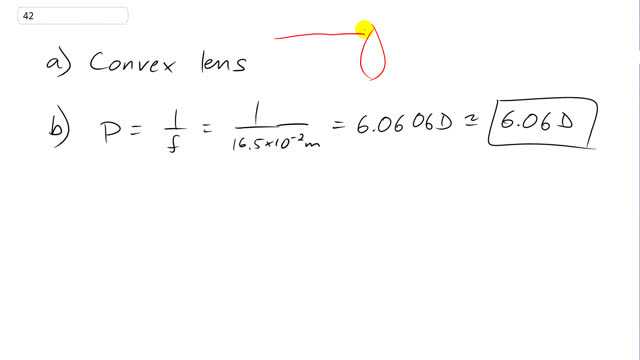 42
a) Convex lens
b) P = 1/f = 1/(16.5×10⁻²m) = 6.0606D ≈ 6.06D